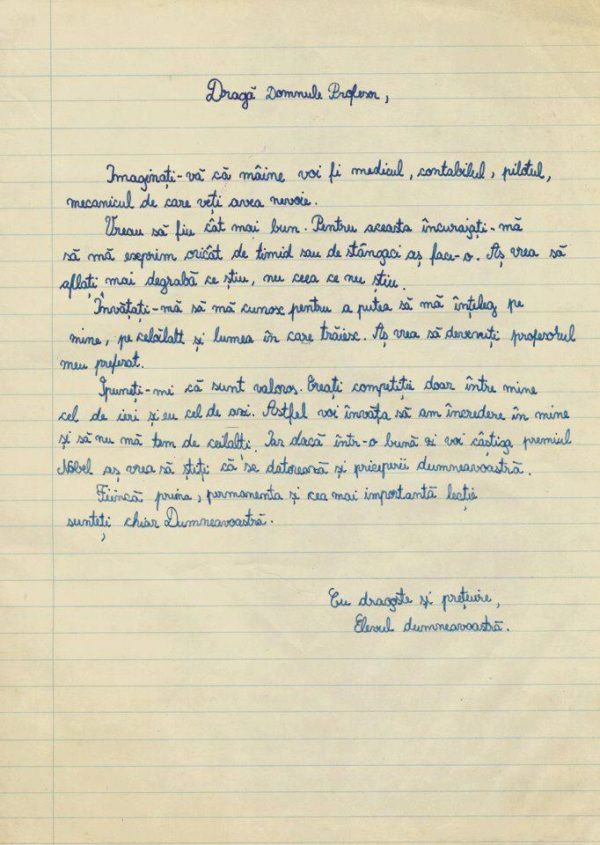 Dragă Domnule Profesor,
Imaginați-vă că mâine voi fi medicul, contabilul, pilotul,
mecanicul de care veți avea nevoie.
Vreau să fiu cât mai bun. Pentru aceasta încurajați-mă
să mă exprim oricât de timid sau de stângaci aș face-o. Aș vrea să
aflați mai degrabă ce știu, nu ceea ce nu știu.
Învățați-mă să mă cunosc pentru a putea să mă înțeleg pe
mine, pe celălalt și lumea în care trăiesc. Aș vrea să deveniți profesorul
meu preferat.
Spuneți-mi că sunt valoros. Creați competiții doar între mine
cel de ieri și eu cel de azi. Astfel voi învăța să am încredere în mine
și să nu mă tem de ceilalți. Iar dacă într-o bună zi voi câștiga premiul
Nobel aș vrea să știți că se datorează și priceperii dumneavoastră.
Fiincă prima, permanenta și cea mai importantă lecție
sunteți chiar Dumneavoastră.
Cu dragoste și prețuire,
Elevul dumneavoastră.